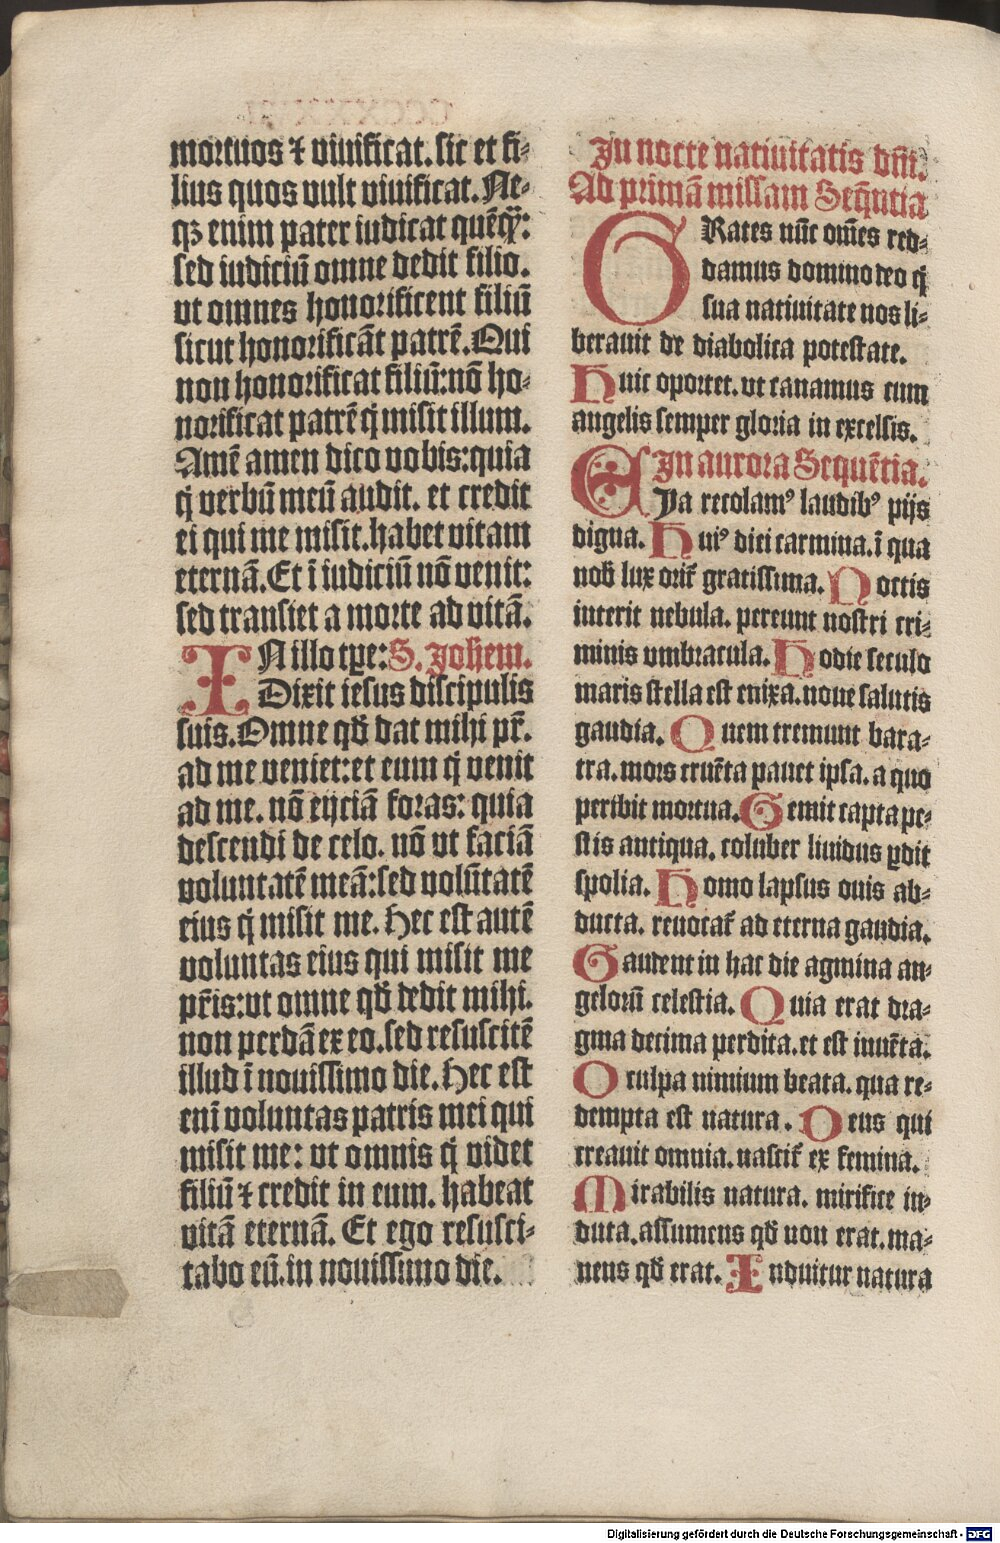 mortuos ⁊ viuificat. sic et fi-
lius quos vult viuificat. Ne-
qꝫ enim pater iudicat quēqȝ̄:
sed iudiciū omne dedit filio.
vt omnes honorificent filiū
sicut honorificāt patrē. Qui
non honorificat filiū: nō ho-
norificat patrē q̄ misit illum.
Amē amen dico vobis: quia
q̄ verbū meū audit. et credit
ei qui me misit. habet vitam
eternā. Et ī iudiciū nō venit:
sed transiet a morte ad vitā.
IN illo tꝑe: S. Johem.
Dixit iesus discipulis
suis. Omne qđ dat mihi pr̄.
ad me veniet: et eum q̄ venit
ad me. nō eijciā foras: quia
descendi de celo. nō vt faciā
voluntatē meā: sed volūtatē
eius q̄ misit me. Hec est autē
voluntas eius qui misit me
pr̄is: vt omne qđ dedit mihi.
non perdā ex eo. sed resuscitē
illud ī nouissimo die. Hec est
enī voluntas patris mei qui
misit me: vt omnis q̄ videt
filiū ⁊ credit in eum. habeat
vitā eternā. Et ego resusci-
tabo eū. in nouissimo die.
In nocte natiuitatis dn̄i.
Ad primā missam Seq̄ntia
GRates nūc om̄es red-
damus domino deo q̄
sua natiuitate nos li-
berauit de diabolica potestate.
Huic oportet. vt canamus cum
angelis semper gloria in excelsis.
In aurora Sequētia.
EJa recolamꝰ laudibꝰ pijs
digna. Huiꝰ diei carmina. ī qua
nob̄ lux orit̄ gratissima. Noctis
interit nebula. pereunt nostri cri-
minis vmbracula. Hodie seculo
maris stella est enixa. noue salutis
gaudia. Quem tremunt bara-
tra. mors cruēta pauet ipsa. a quo
peribit mortua. Gemit capta pe-
stis antiqua. coluber liuidus ꝑdit
spolia. Homo lapsus ouis ab-
ducta. reuocat̄ ad eterna gaudia.
Gaudent in hac die agmina an-
gelorū celestia. Quia erat dra-
gma decima perdita. et est inuēta.
O culpa nimium beata. qua re-
dempta est natura. Deus qui
creauit omnia. nascit̄ ex femina.
Mirabilis natura. mirifice in-
duta. assumens qđ non erat. ma-
nens qđ erat. Induitur natura
Digitalisierung gefördert durch die Deutsche Forschungsgemeinschaft - DFG